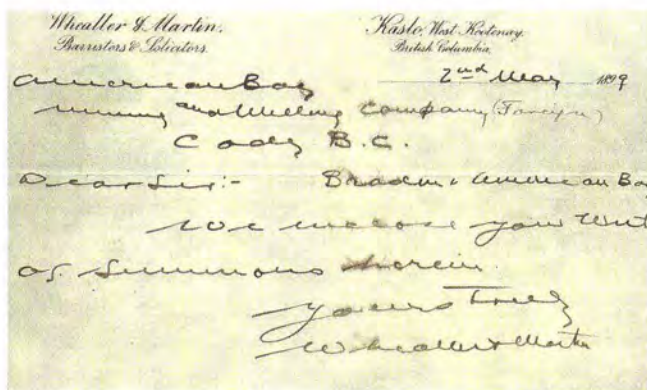 Whealler & Martin. Kaslo, West Kootenay,
Barristers & Solicitors. British Columbia
2nd May 1899
American Boy
Mining and Milling Company (Foreign)
Cody B.C.
Dear Sir:- Braden v American Boy
We inclose you Writ
of Summons herein.
Yours Truly
Whealler & Martin